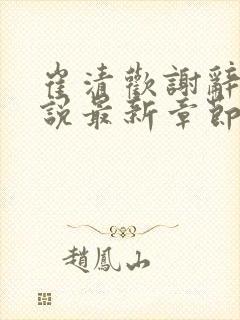 崔清歡謝辭
說最新章節
趙鳳山